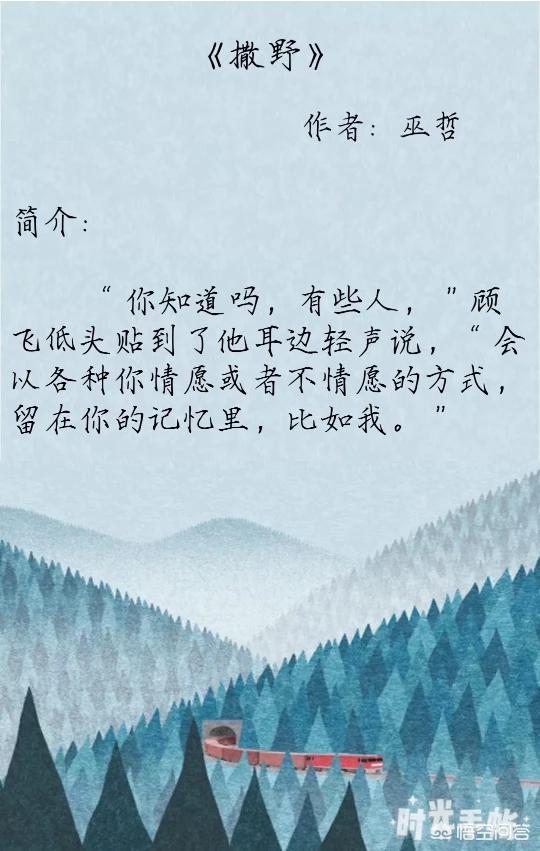 《撒野》
作者：巫哲
简介：
“你知道吗，有些人，"顾
飞低头贴到了他耳边轻声说，“会
以各种你情愿或者不情愿的方式，
留在你的记忆里，比如我。"
时光手帐
悟空问答